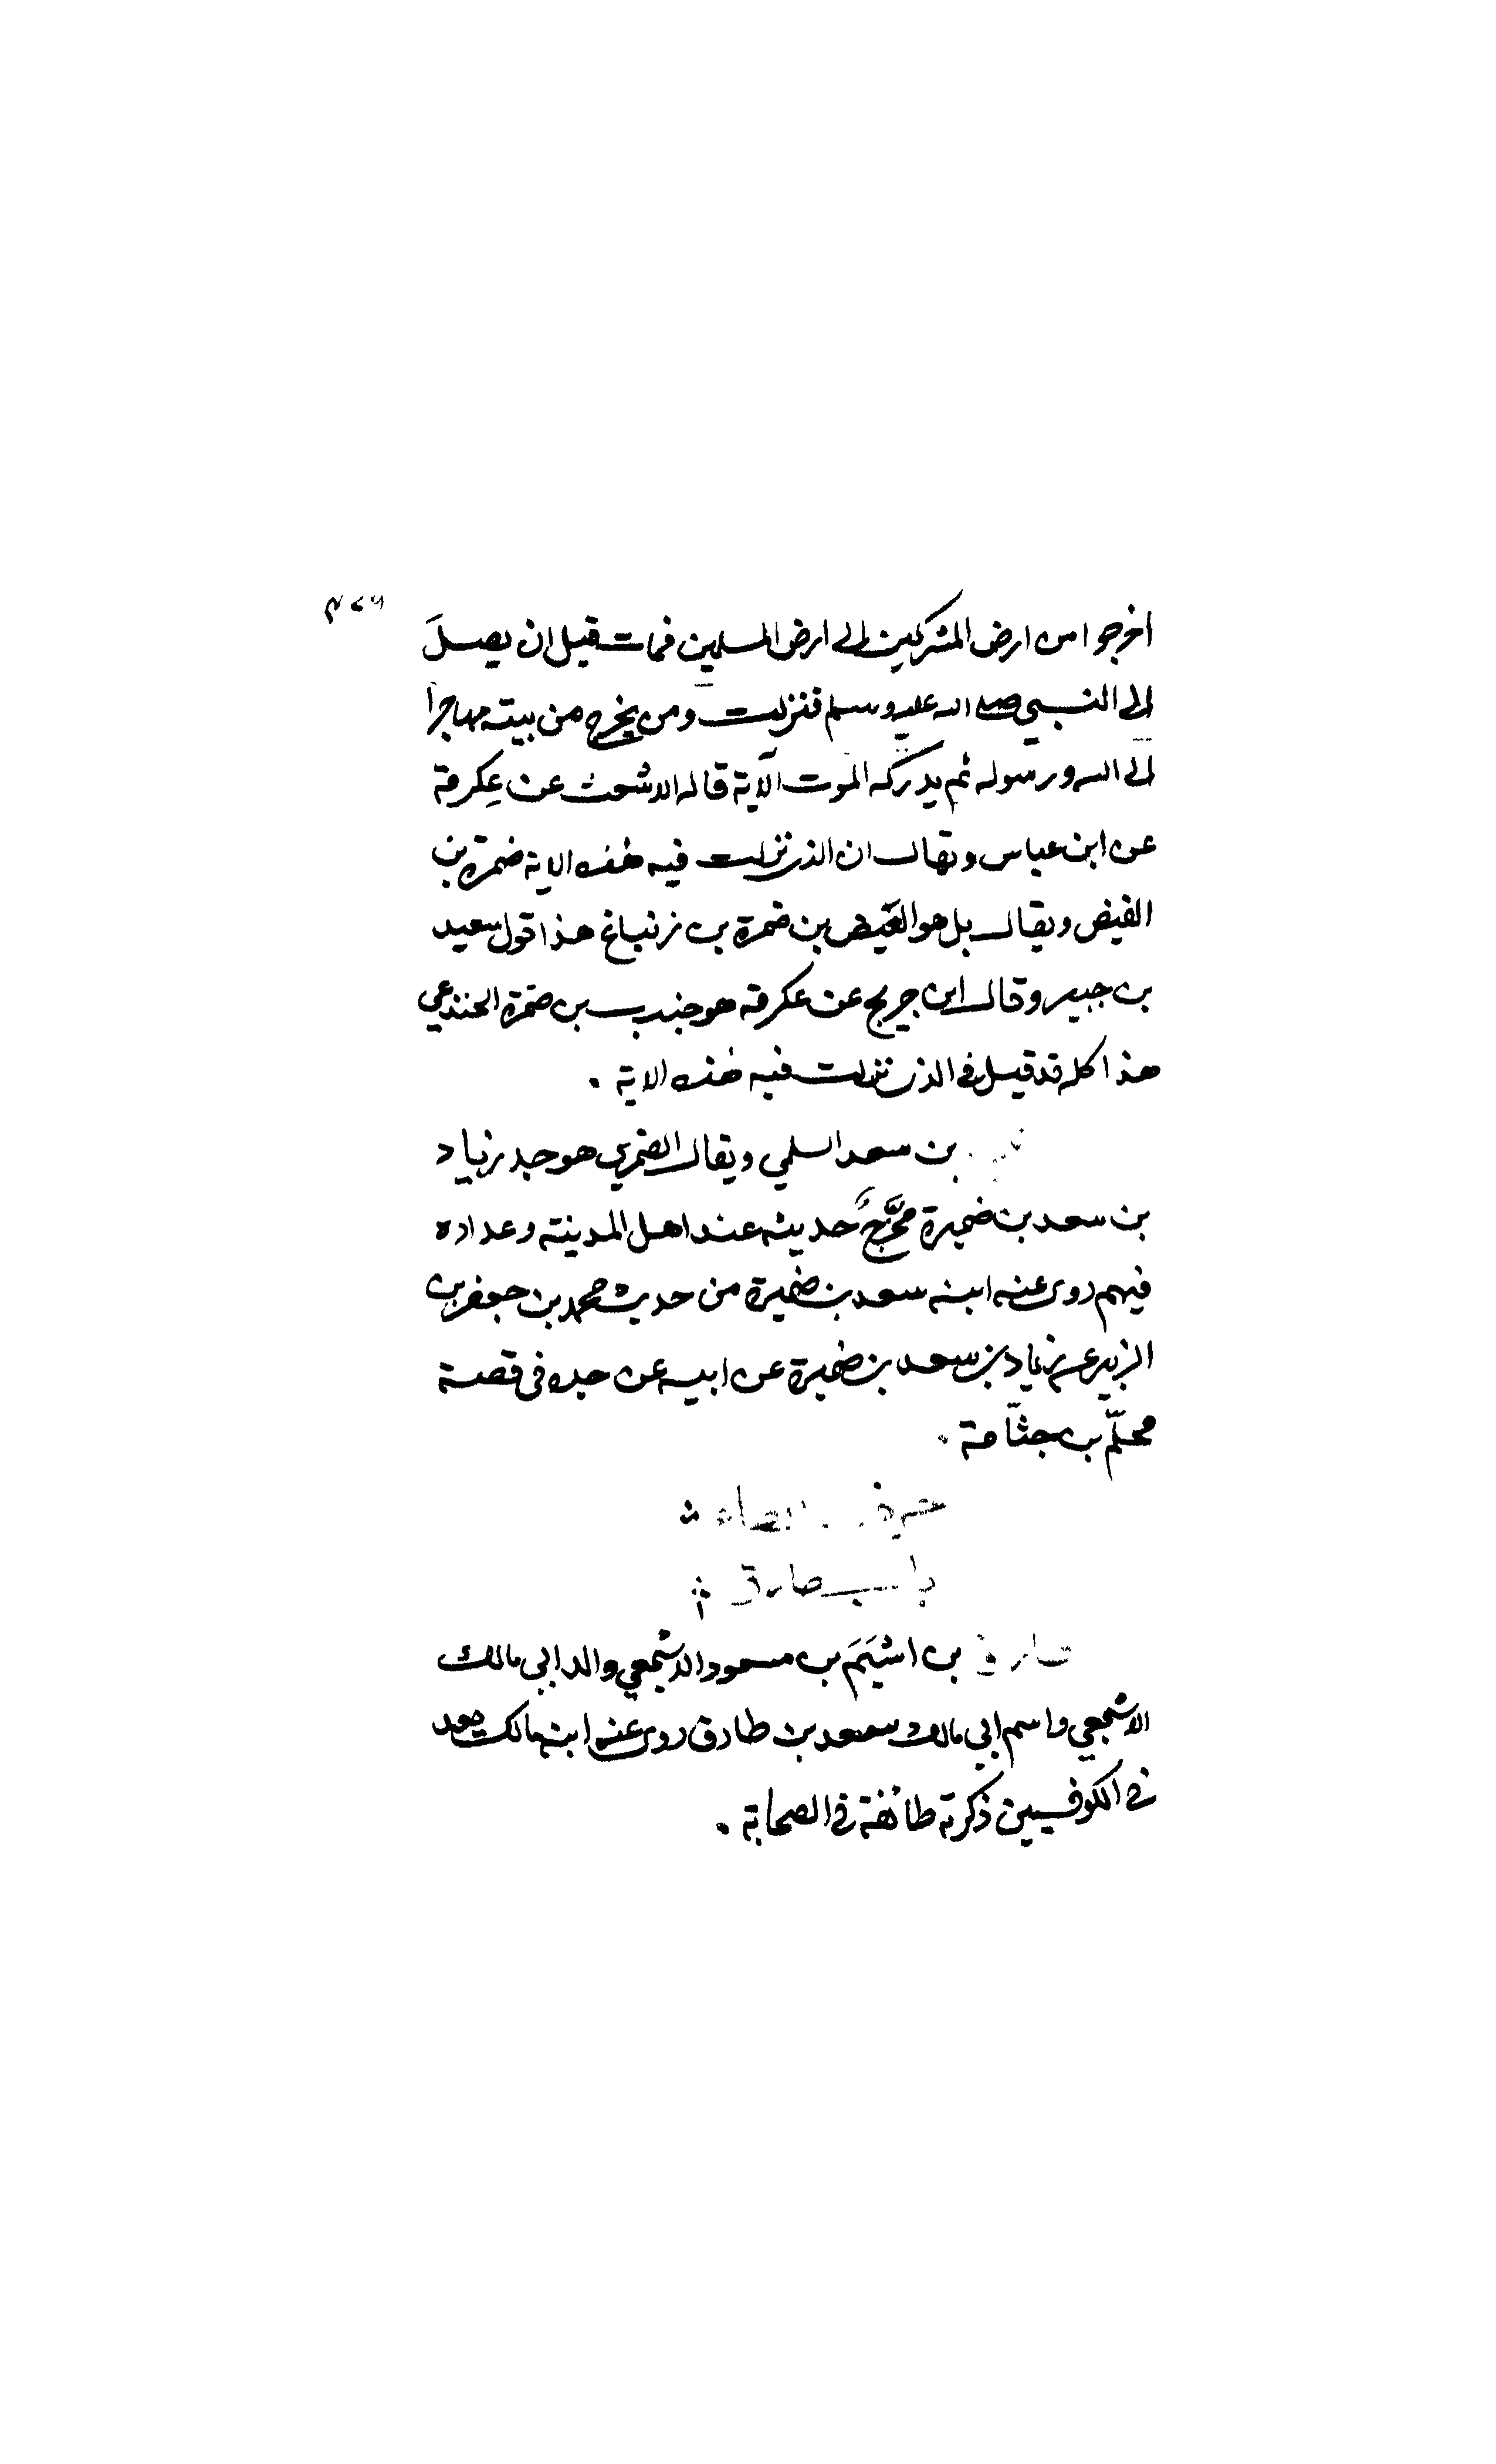 اخرجوا من ارض المشركين الى ارض المسلمين فمات قبل ان يصلَ
الى النبي صلى الله عليه وسلم فنزلت ومن يخرج من بيته مهاجرا
الى الله ورسوله ثم يدركه الموت الآية قاله الاشعث عن عِكرمة
عن ابن عباس ويقال ان الذى نزلت فيه هذه الاية ضمرة بن
الفيض ويقال بل هو العيض بن ضمرة بن زنباغ هذا قول سعيد
بن جبير وقال ابن جريج عن عكرمة هو جندب بن ضمرة الجندعي
هذا كله قد قيل فى الذى نزلت فيه هذه الاية .
بن سعد السلمي ويقال الضمري هو جد زياد
بن سعد بن ضميرة مخرَّجُ حديثه عند اهل المدينة وعداده
فيهم روى عنه ابنه سعد بن ضميرة من حديث محمد بن جعفر بن
الزبير عن زياد بن سعد بن ضميرة عن ابيه عن جده فى قصة
محلّم بن جثّامة .
حرف الطاء
باب طارق
طارق بن اشيَمَ بن مسعود الاشجعي والد ابي مالك
الاشجعي واسم ابي مالك سعد بن طارق روى عنه ابنه مالك يعد
فى الكوفيين ذكرته طائفة فى الصحابة .